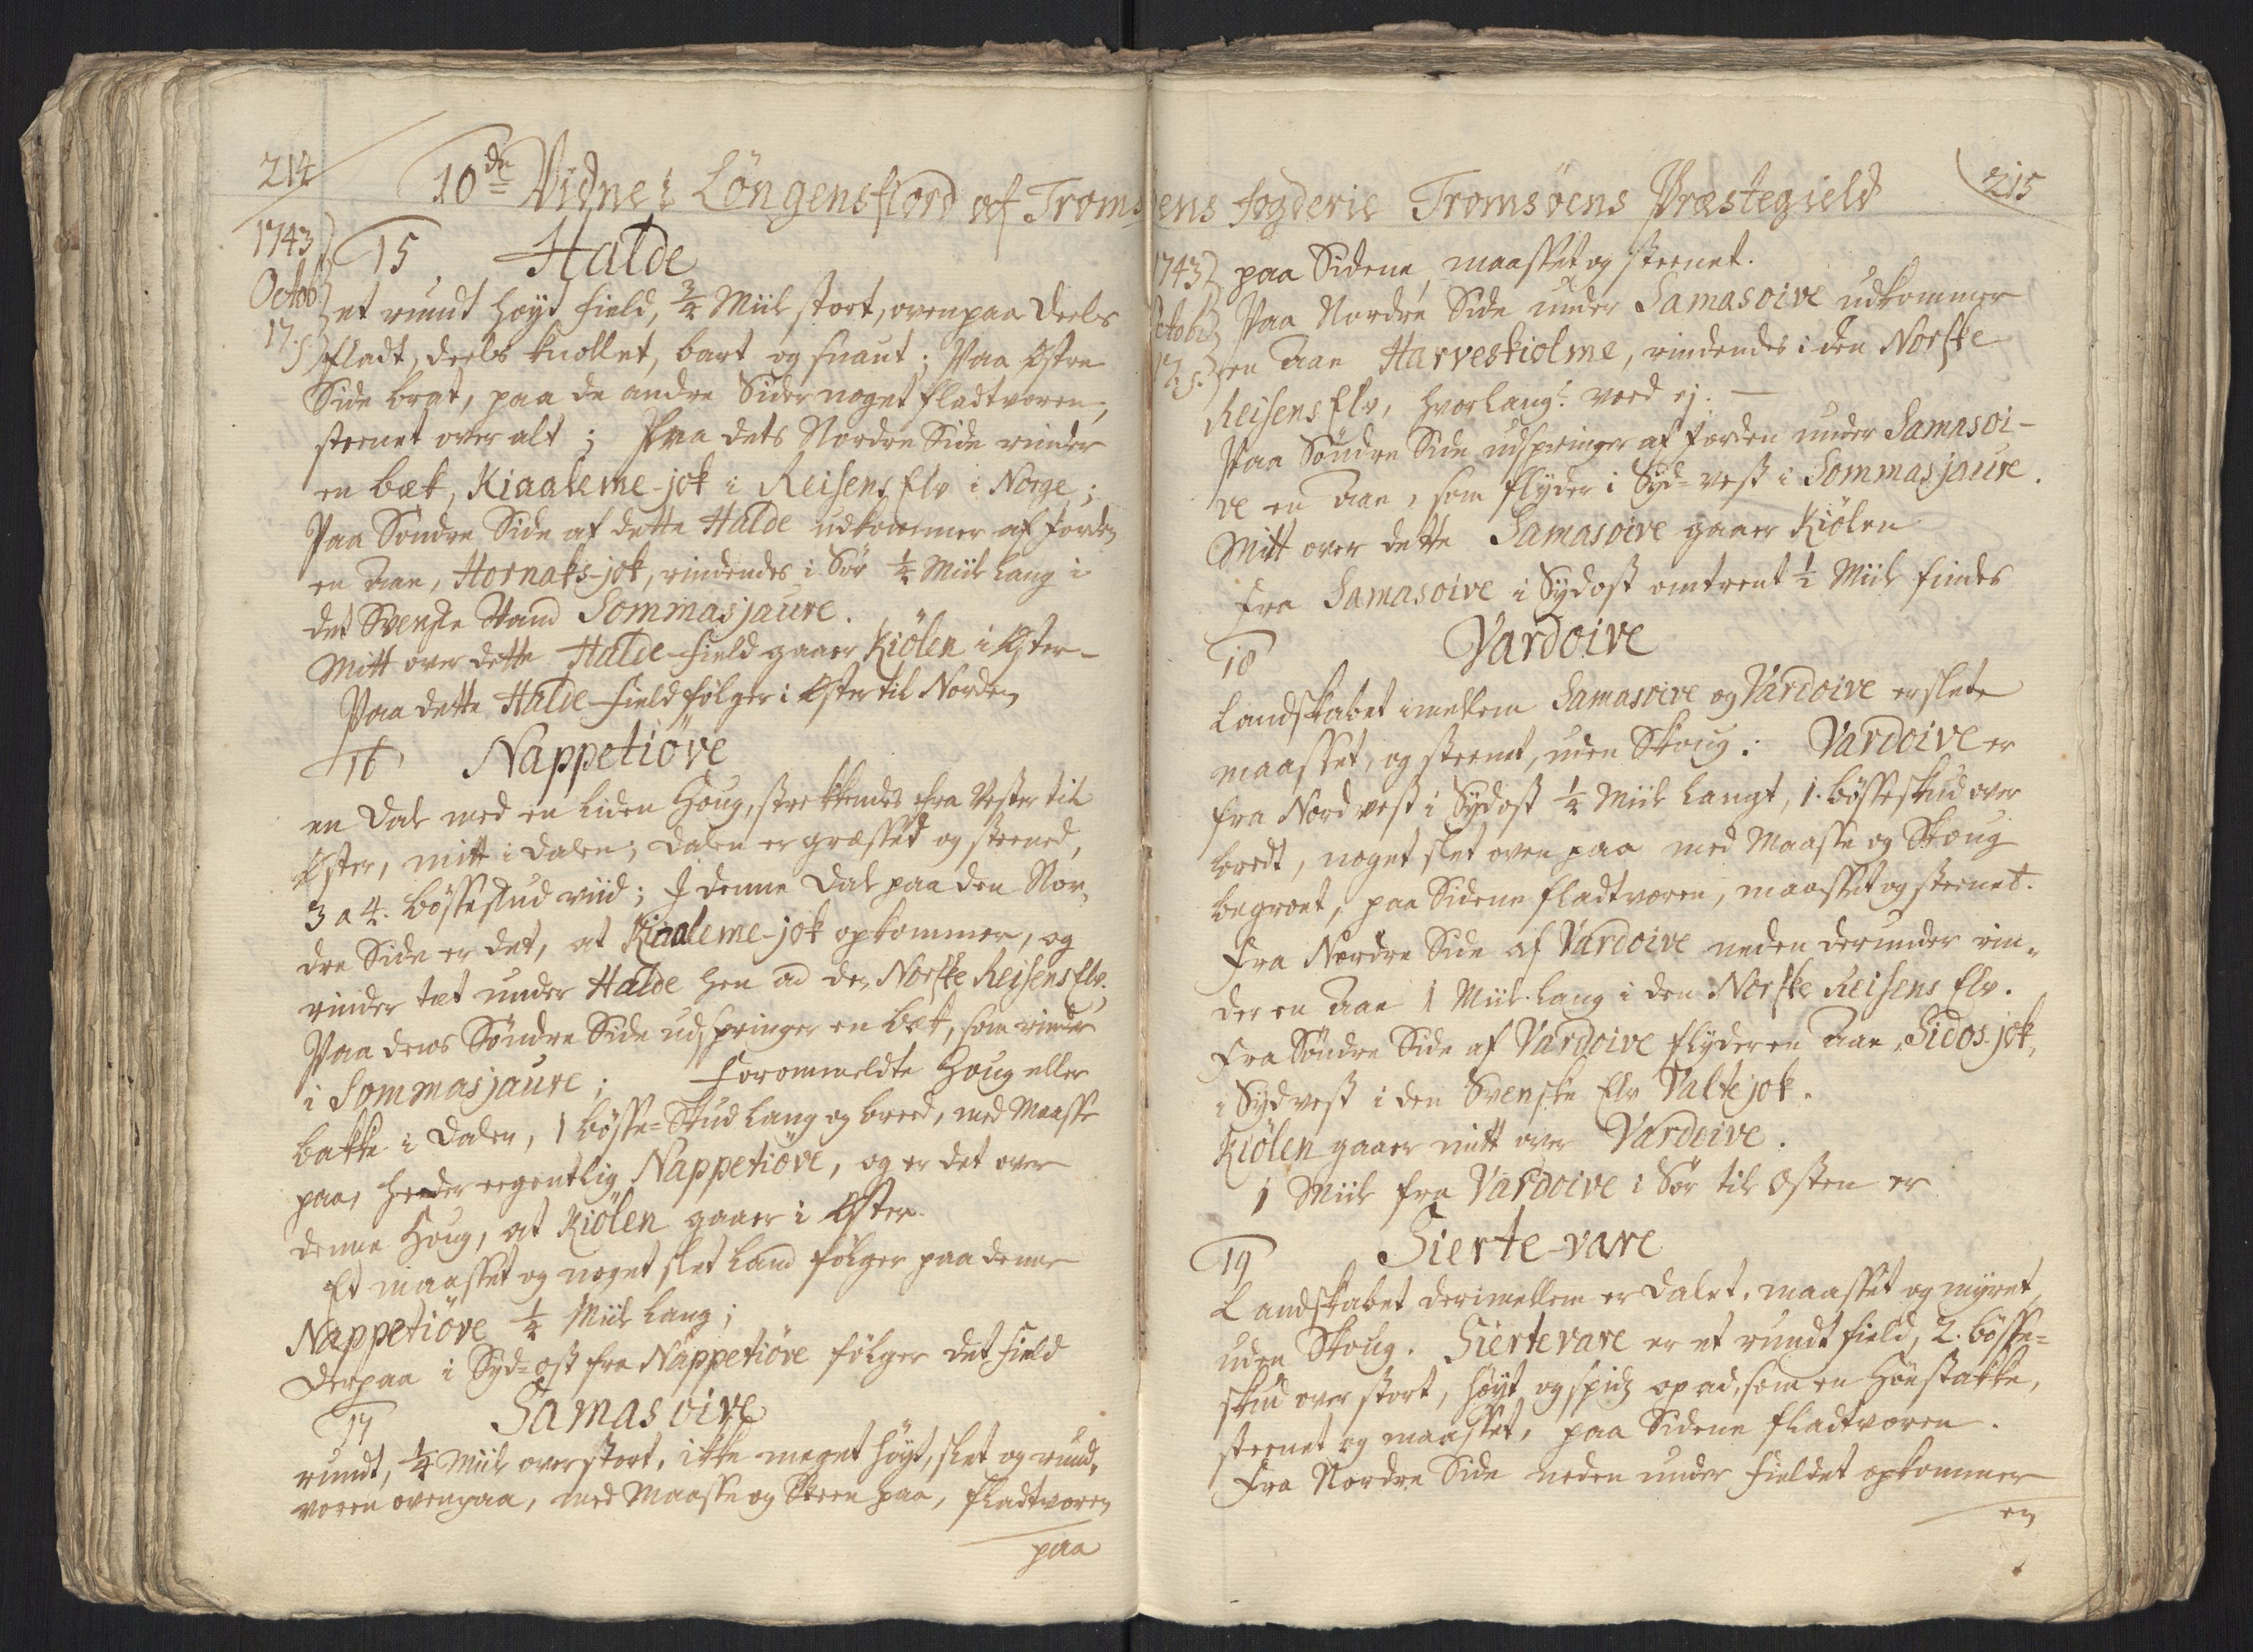 214
10de Vidne i Lÿngensfiord af Troms
1743
Octob:
17.
15. Halde
et rundt høyt field, 3/4 Miil stort, ovenpaa deels
fladt, deels knollet, bart og snaut; Paa Østre
Side brat, paa de andre Sider noget fladtvoren,
steenet over alt; Fra dets Nordre Side rinder
en bæk, Kiaaleme-jok i Reisens Elv i Norge;
Paa Søndre Side af dette Halde udkommer af Jorden
en Aae, Hornaks-jok, rindendes i Sør 1/4 Miil lang i
det Svenske Vand Sommasjaure.
Mitt over dette Halde-field gaaer Kiölen i Øster-
Paa dette Halde-field følger i Øster til Norden
16 Nappetiöve
en Dal med en liden Houg, strekkendes fra Vester til
Øster, mitt i Dalen; Dalen er græsset og steened,
3 a 4. bøsseskud viid; I denne Dal paa den Nor-
dre Side er det, at Kiaaleme-jok opkommer, og
rinder tæt under Halde hen ad den Norske Reisens Elv.
Paa dens Søndre Side udspringer en bæk, som rinder
i Sommasjaure; Forommeldte Houg eller
bakke i Dalen, 1 bøsse-Skud lang og breed, med Maasse
paa, heeder egentlig Nappetiöve, og er det over
denne Houg, at Kiölen gaaer i Øster.
Et maasset og noget slet Land følger paa denne
Nappetiöve 1/4 Miil lang;
Derpaa i Syd-ost fra Nappetiöve følger det field
17 Samasoive
rundt, 1/4 Miil over stort, ikke meget høyt, slet og rund-
voren ovenpaa, med Maasse og Steen paa, fladtvoren
paa
ens fogderie Tromsöens Præstegield
215
1743
Octob:
17.
paa Siderne, maasset og steenet.
Paa Nordre Side under Samasoive udkommer
en Aae Harveskiolme, rindendes i den Norske
Reisens Elv, hvor lang: veed ej. —
Paa Søndre Side udspringer af Jorden under Samasoi-
ve en Aae, som flyder i Syd-vest i Sommasjaure.
Mitt over dette Samasoive gaaer Kiölen
Fra Samasoive i Sydost omtrent 1/2 Miil findes
18 Vardoive
Landskabet imellem Samasoive og Vardoive er slet
maasset, og steenet, uden Skoug. Vardoive er
fra Nordvest i Sydost 1/4 Miil langt, 1. bøsseskud over
bredt, noget slet oven paa med Maasse og Skoug
begroet, paa Siderne fladtvoren, maasset og steenet.
Fra Nordre Side af Vardoive neden derunder rin-
der en Aae 1 Miil lang i den Norske Reisens Elv.
Fra Søndre Side af Vardoive flyder en Aae, Sidos-jok,
i Sydvest i den Svenske Elv Valtejok.
Kiölen gaaer mitt over Vardoive.
1 Miil fra Vardoive i Sør til Osten er
19 Sierte-vare
Landskabet derimellem er dalet, maasset og myret,
uden Skoug. Siertevare er et rundt field, 2. bøsse-
skud over stort, høyt, og spidz opad, som en Høestakke,
steenet og maasset, paa Siderne fladtvoren.
Fra Nordre Side neden under fieldet opkommer
en